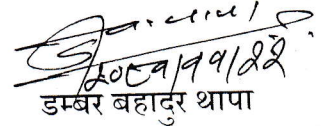 २०८१/११/२२
डम्बर बहादुर थापा